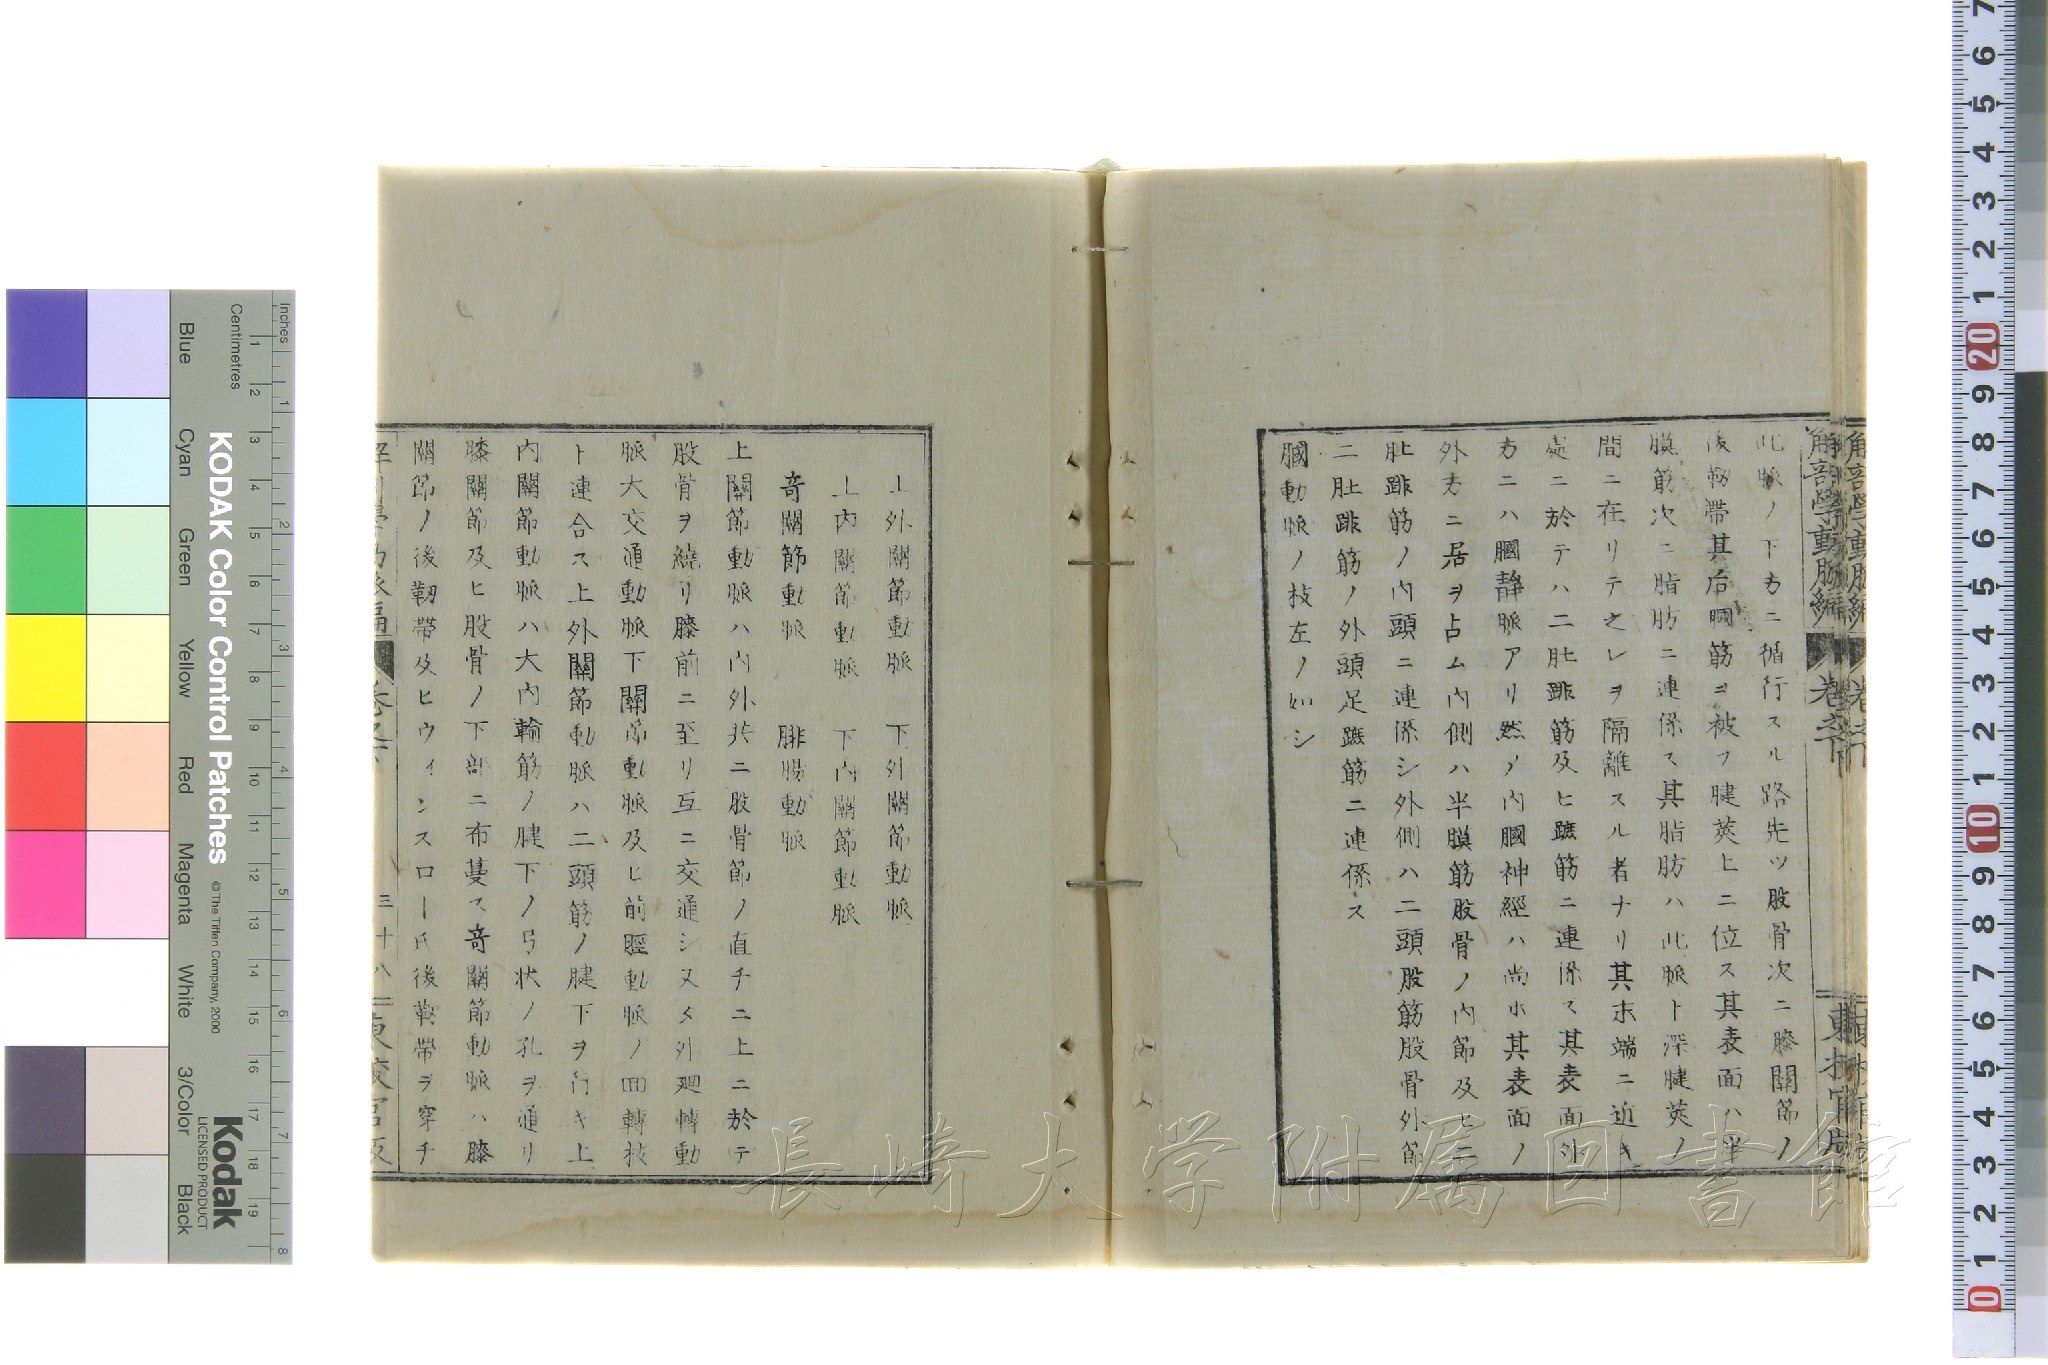 此脈ノ下方ニ循行スル路先ツ股骨次ニ膝關節ノ
後靱帶其后膕筋ヲ被フ腱莢上ニ位ス其表面ハ半
膜筋次ニ脂肪ニ連係ス其脂肪ハ此脈ト深腱莢ノ
間ニ在リテ之レヲ隔離スル者ナリ其末端ニ近キ
處ニ於テハ二肚腓筋及ヒ蹠筋ニ連係ス其表面外
方ニハ膕靜脈アリ然ノ內膕神經ハ尚ホ其表面ノ
外方ニ居ヲ占ム內側ハ半膜筋股骨ノ內節及ヒ二
肚腓筋ノ內頭ニ連係シ外側ハ二頭股筋股骨外節
二肚腓筋ノ外頭足蹠筋ニ連係ス
膕動脈ノ枝左ノ如シ
解剖學動脈編
卷之下
上外關節動脈 下外關節動脈
上內關節動脈 下內關節動脈
奇關節動脈 腓腸動脈
上關節動脈ハ內外共ニ股骨節ノ直チニ上ニ於テ
股骨ヲ繞リ膝前ニ至リ互ニ交通シ又タ外廻轉動
脈大交通動脈下關節動脈及ヒ前脛動脈ノ回轉枝
ト連合ス上外關節動脈ハ二頭筋ノ腱下ヲ行キ上
內關節動脈ハ大內輪筋ノ腱下ノ弓狀ノ孔ヲ通リ
膝關節及ヒ股骨ノ下部ニ布蔓ス奇關節動脈ハ膝
關節ノ後靱帶及ヒウィンスロー氏後靱帶ヲ穿チ
三十八
KODAK Color Control Patches
© The Tiffen Company, 2000
Kodak
LICENSED PRODUCT
Inches
Centimetres
Blue
Cyan
Green
Yellow
Red
Magenta
White
3/Color
Black
長崎大学附属図書館